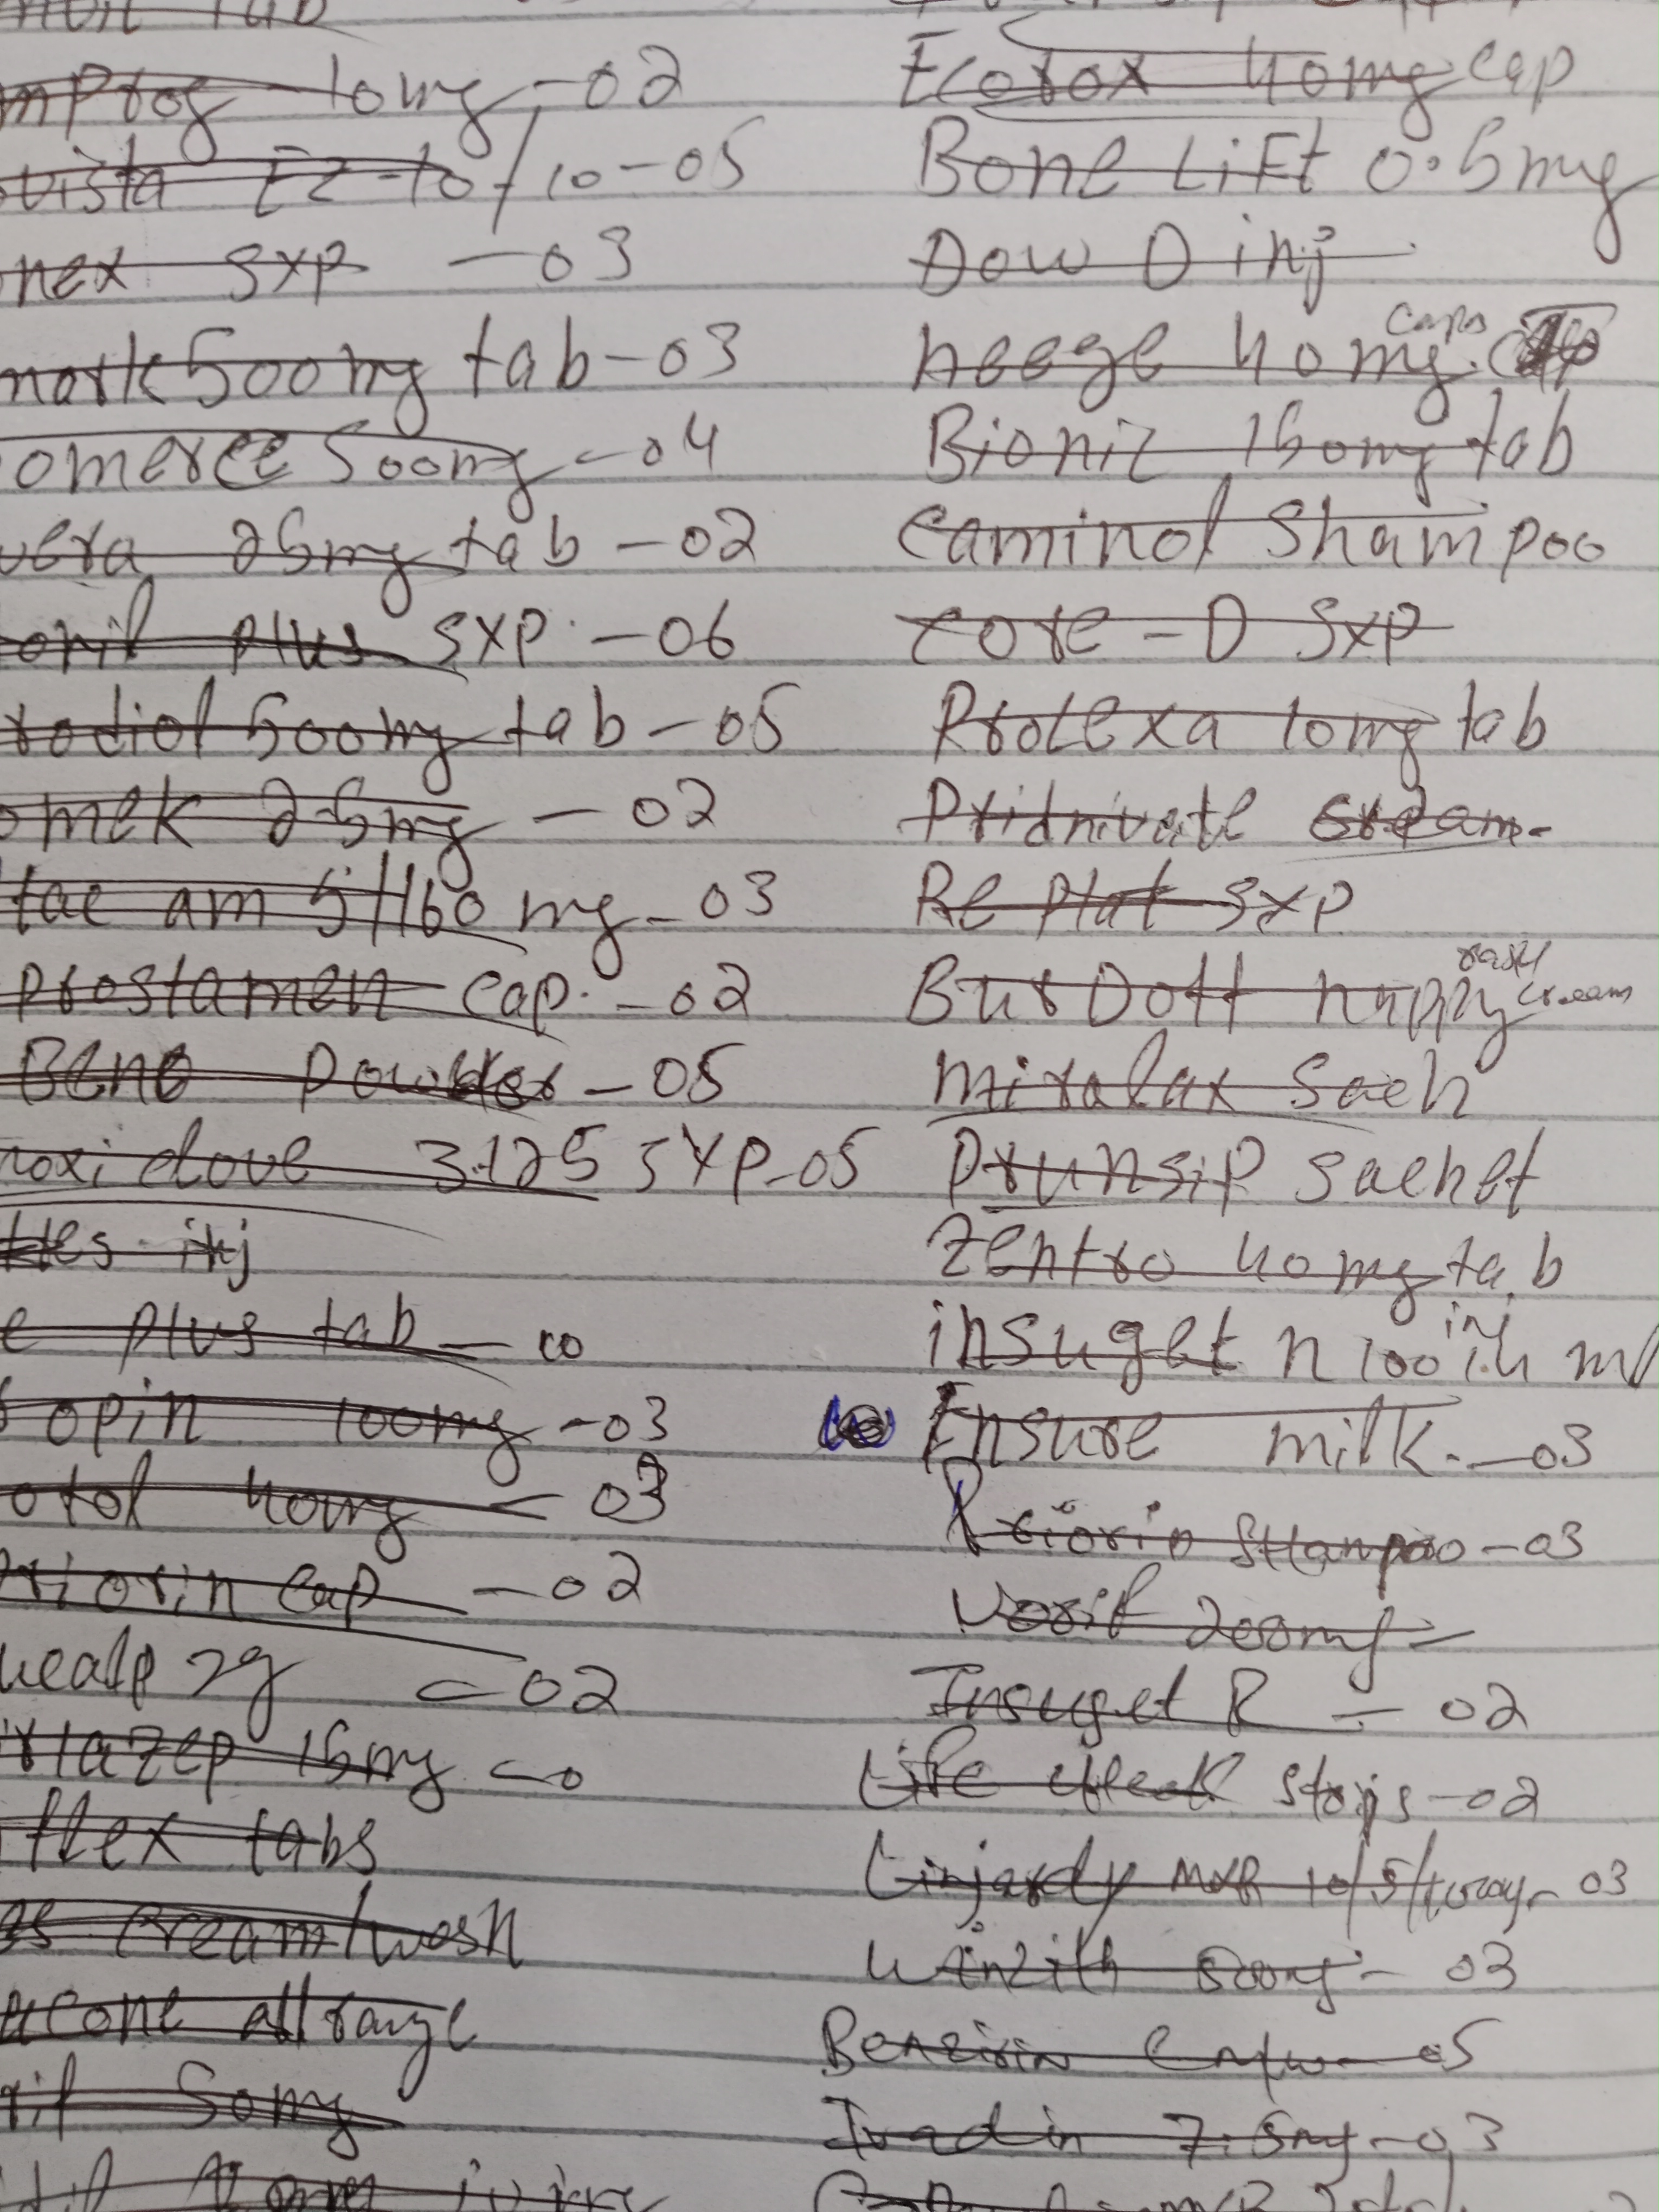 tab
10mg -02
vista Ez 10/10 -05
nex syp -03
500mg tab -03
omerce 500mg -04
vera 25mg tab -02
onil plus syp. -06
rodiol 500mg tab -05
omek 25mg -02
am 5/160 mg -03
prostamen cap. -02
Bene Powder -05
oxi clove 3.125 SYP -05
inj
e plus tab - 10
opin 100mg -03
otol 40mg - 03
riorin cap -02
2g -02
irtazep 15mg -0
flex tabs
cream/wash
cone all range
rif 50mg
Ecotox 40mg cap
Bone Lift 0.5mg
Dow D inj
neege 40mg caps
Bionic 150mg tab
Caminol Shampoo
core - D syp
Protexa 10mg tab
Pridnivate cream
Re Plat syp
BurDoff nappy rash cream
miralax sach
Prunsip sachet
Zentro 40mg tab
insuget n 100 i.u ml inj
Ensure milk. -03
Priorin Shampoo -03
Vorif 200mg -
Insuget R - 02
Life check strips -02
Linjardy 10/5/1000mg - 03
Winzith 500mg - 03
Benzirin -05
Ivadin 7.5mg -03